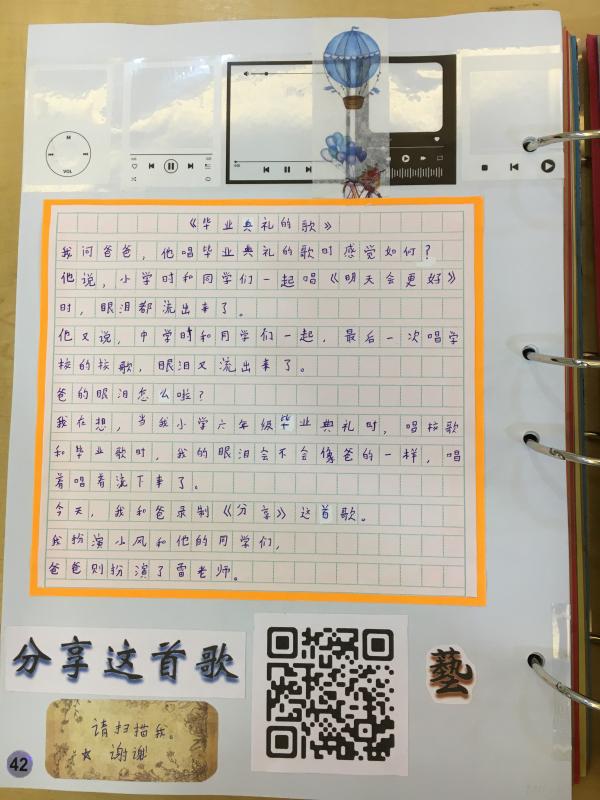 M
VOL
《毕业典礼的歌》
我问爸爸，他唱毕业典礼的歌时感觉如何？
他说，小学时和同学们一起唱《明天会更好》
时，眼泪都流出来了。
他又说，中学时和同学们一起，最后一次唱学
校的校歌，眼泪又流出来了。
爸的眼泪怎么啦？
我在想，当我小学六年级毕业典礼时，唱校歌
和毕业歌时，我的眼泪会不会像爸的一样，唱
着唱着流下来了。
今天，我和爸录制《分享》这首歌。
我扮演小风和他的同学们，
爸爸则扮演了雷老师。
分享这首歌
藝
请扫描我。
☆ 谢谢
42